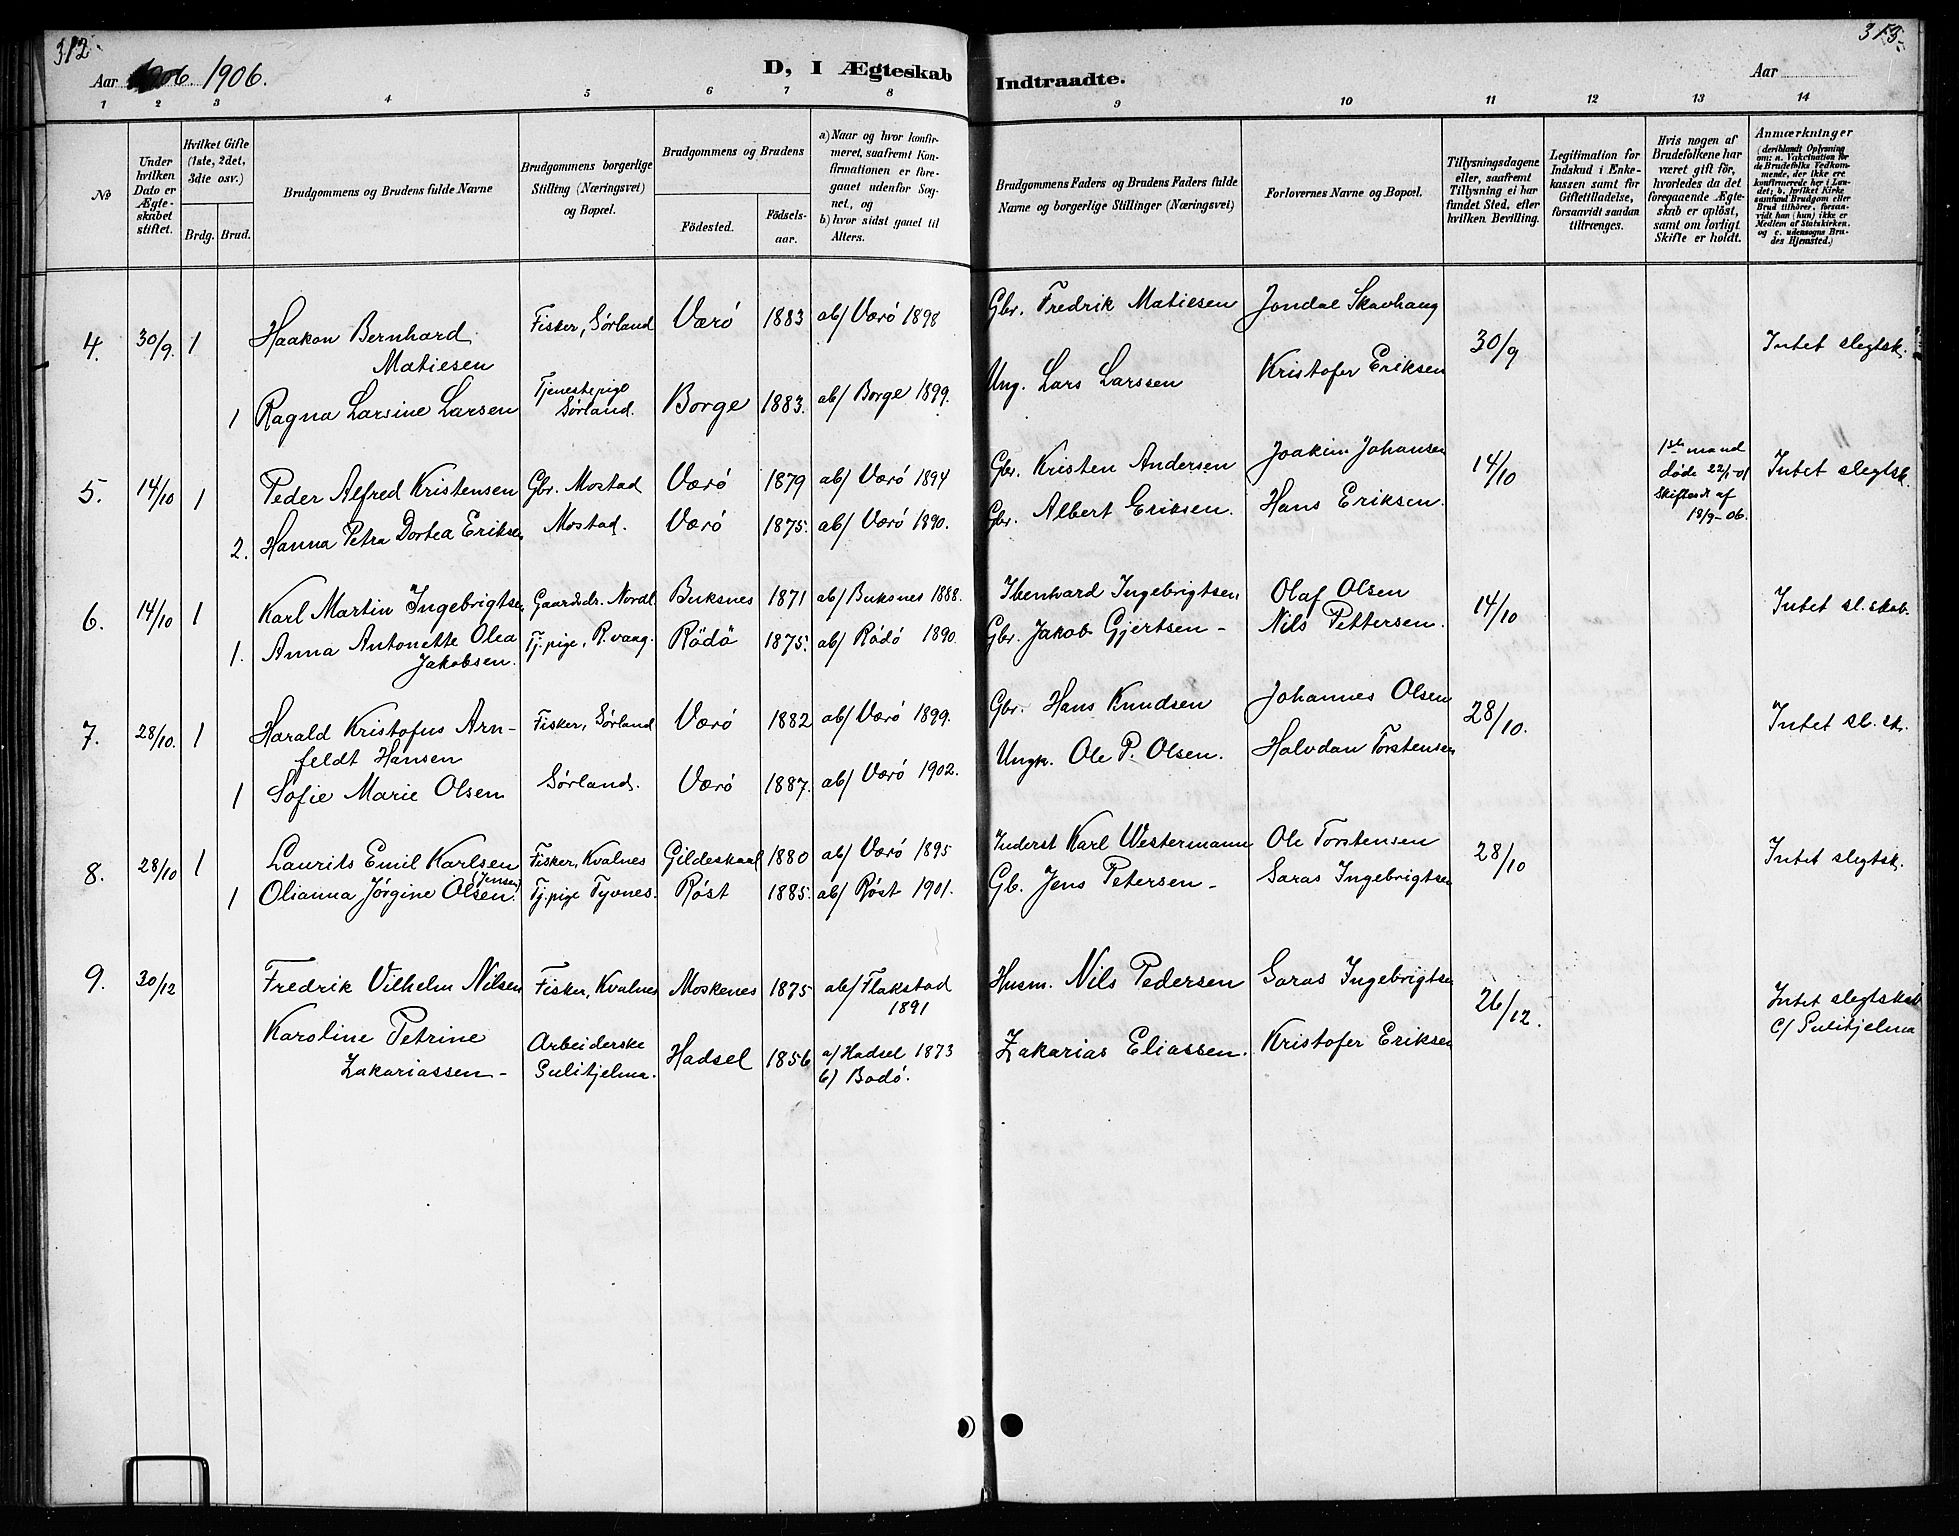 312
Aar 1906. 1906.
D, I Ægteskab Indtraadte.
Aar
313.
1 2 3 4 5 6 7 8 9 10 11 12 13 14
No
Under hvilken Dato er Ægteskabet stiftet.
Hvilket Gifte (1ste, 2det, 3die osv.)
Brdg. Brud.
Brudgommens og Brudens fulde Navne
Brudgommens borgerlige Stilling (Næringsvei) og Bopæl.
Brudgommens og Brudens
Fødested.
Fødselsaar.
a) Naar og hvor konfirmeret, saafremt Konfirmationen er foregaaet udenfor Sognet, og
b) hvor sidst gaaet til Alters.
Brudgommens Faders og Brudens Faders fulde Navne og borgerlige Stillinger (Næringsvei)
Forlovernes Navne og Bopæl.
Tillysningsdagene eller, saafremt Tillysning ei har fundet Sted, efter hvilken Bevilling.
Legitimation for Indskud i Enkekassen samt for Giftetilladelse, forsaavidt saadan tiltrænges.
Hvis nogen af Brudefolkene har været gift før, hvorledes da det foregaaende Ægteskab er opløst, samt om lovligt Skifte er holdt.
Anmærkninger (deriblandt Oplysning om: a. Vakcination for de Brudefolks Vedkommende, der ikke ere konfirmerede her i Landet; b. hvilket Kirkesamfund Brudgom eller Brud tilhører, forsaavidt han (hun) ikke er Medlem af Statskirken, og c. udensogns Brudes Hjemsted.)
4. 30/9. 1 Haakon Bernhard Matiesen Fisker, Sørland Værö 1883 ab/ Værö 1898 Gbr. Fredrik Matiesen Jondal Skavhaug 30/9 Intet slegtsk.
1 Ragna Larsine Larsen Tjenestepige Sørland. Borge 1883. ab/ Borge 1899. Ung. Lars Larssen Kristofer Eriksen
5. 14/10 1 Peder Alfred Kristensen Gbr. Mostad Værö 1879 ab/ Værö 1894 Gbr. Kristen Andersen Joakim Johansen 14/10 1ste mand døde 22/1-01 Skifteat af 18/9-06. Intet slegtsk.
2. Hanna Petra Dortea Eriksen Mostad. Værö 1875. ab/ Værö 1890. Gbr. Albert Eriksen. Hans Eriksen.
6. 14/10 1 Karl Martin Ingebrigtsen Gaardbr. Nordl. Buksnes 1871 ab/ Buksnes 1888. Ibenhard Ingebrigtsen Olaf Olsen 14/10 Intet sl. skab.
1. Anna Antonette Olea Jakobsen. Tj. pige, R. vaag. Rödö 1875. ab/ Rödö 1890. Gbr. Jakob Gjertsen - Nils Pettersen.
7. 28/10. 1 Harald Kristofus Arnfeldt Hansen Fisker, Sørland Værö 1882 ab/ Værö 1899. Gbr. Hans Knudsen Johannes Olsen 28/10. Intet sl. sk.
1 Sofie Marie Olsen Sørland. Værö 1887. ab/ Værö 1902. Ungk. Ole P. Olsen. Halvdan Torstensen
8. 28/10 1 Laurits Emil Karlsen Fisker, Kvalnes Gildeskaal 1880 ab/ Værö 1895 Inderst Karl Westermann Ole Torstensen 28/10 Intet slegtsk.
1 Olianna Jørgine Olsen. (Jensen) Tj. pige Tyvnes. Røst 1885. ab/ Røst 1901. Gb. Jens Petersen - Saras Ingebrigtsen
9. 30/12 Fredrik Vilhelm Nilsen Fisker, Kvalnes Moskenes 1875 ab/ Flakstad 1891 Husm. Nils Pedersen Saras Ingebrigtsen 26/12. Intet slegtskab c/ Sulitjelma
Karoline Petrine Zakariassen - Arbeiderske Sulitjelma. Hadsel 1856 a/ Hadsel 1873 b/ Bodö. Zakarias Eliassen. Kristofer Eriksen